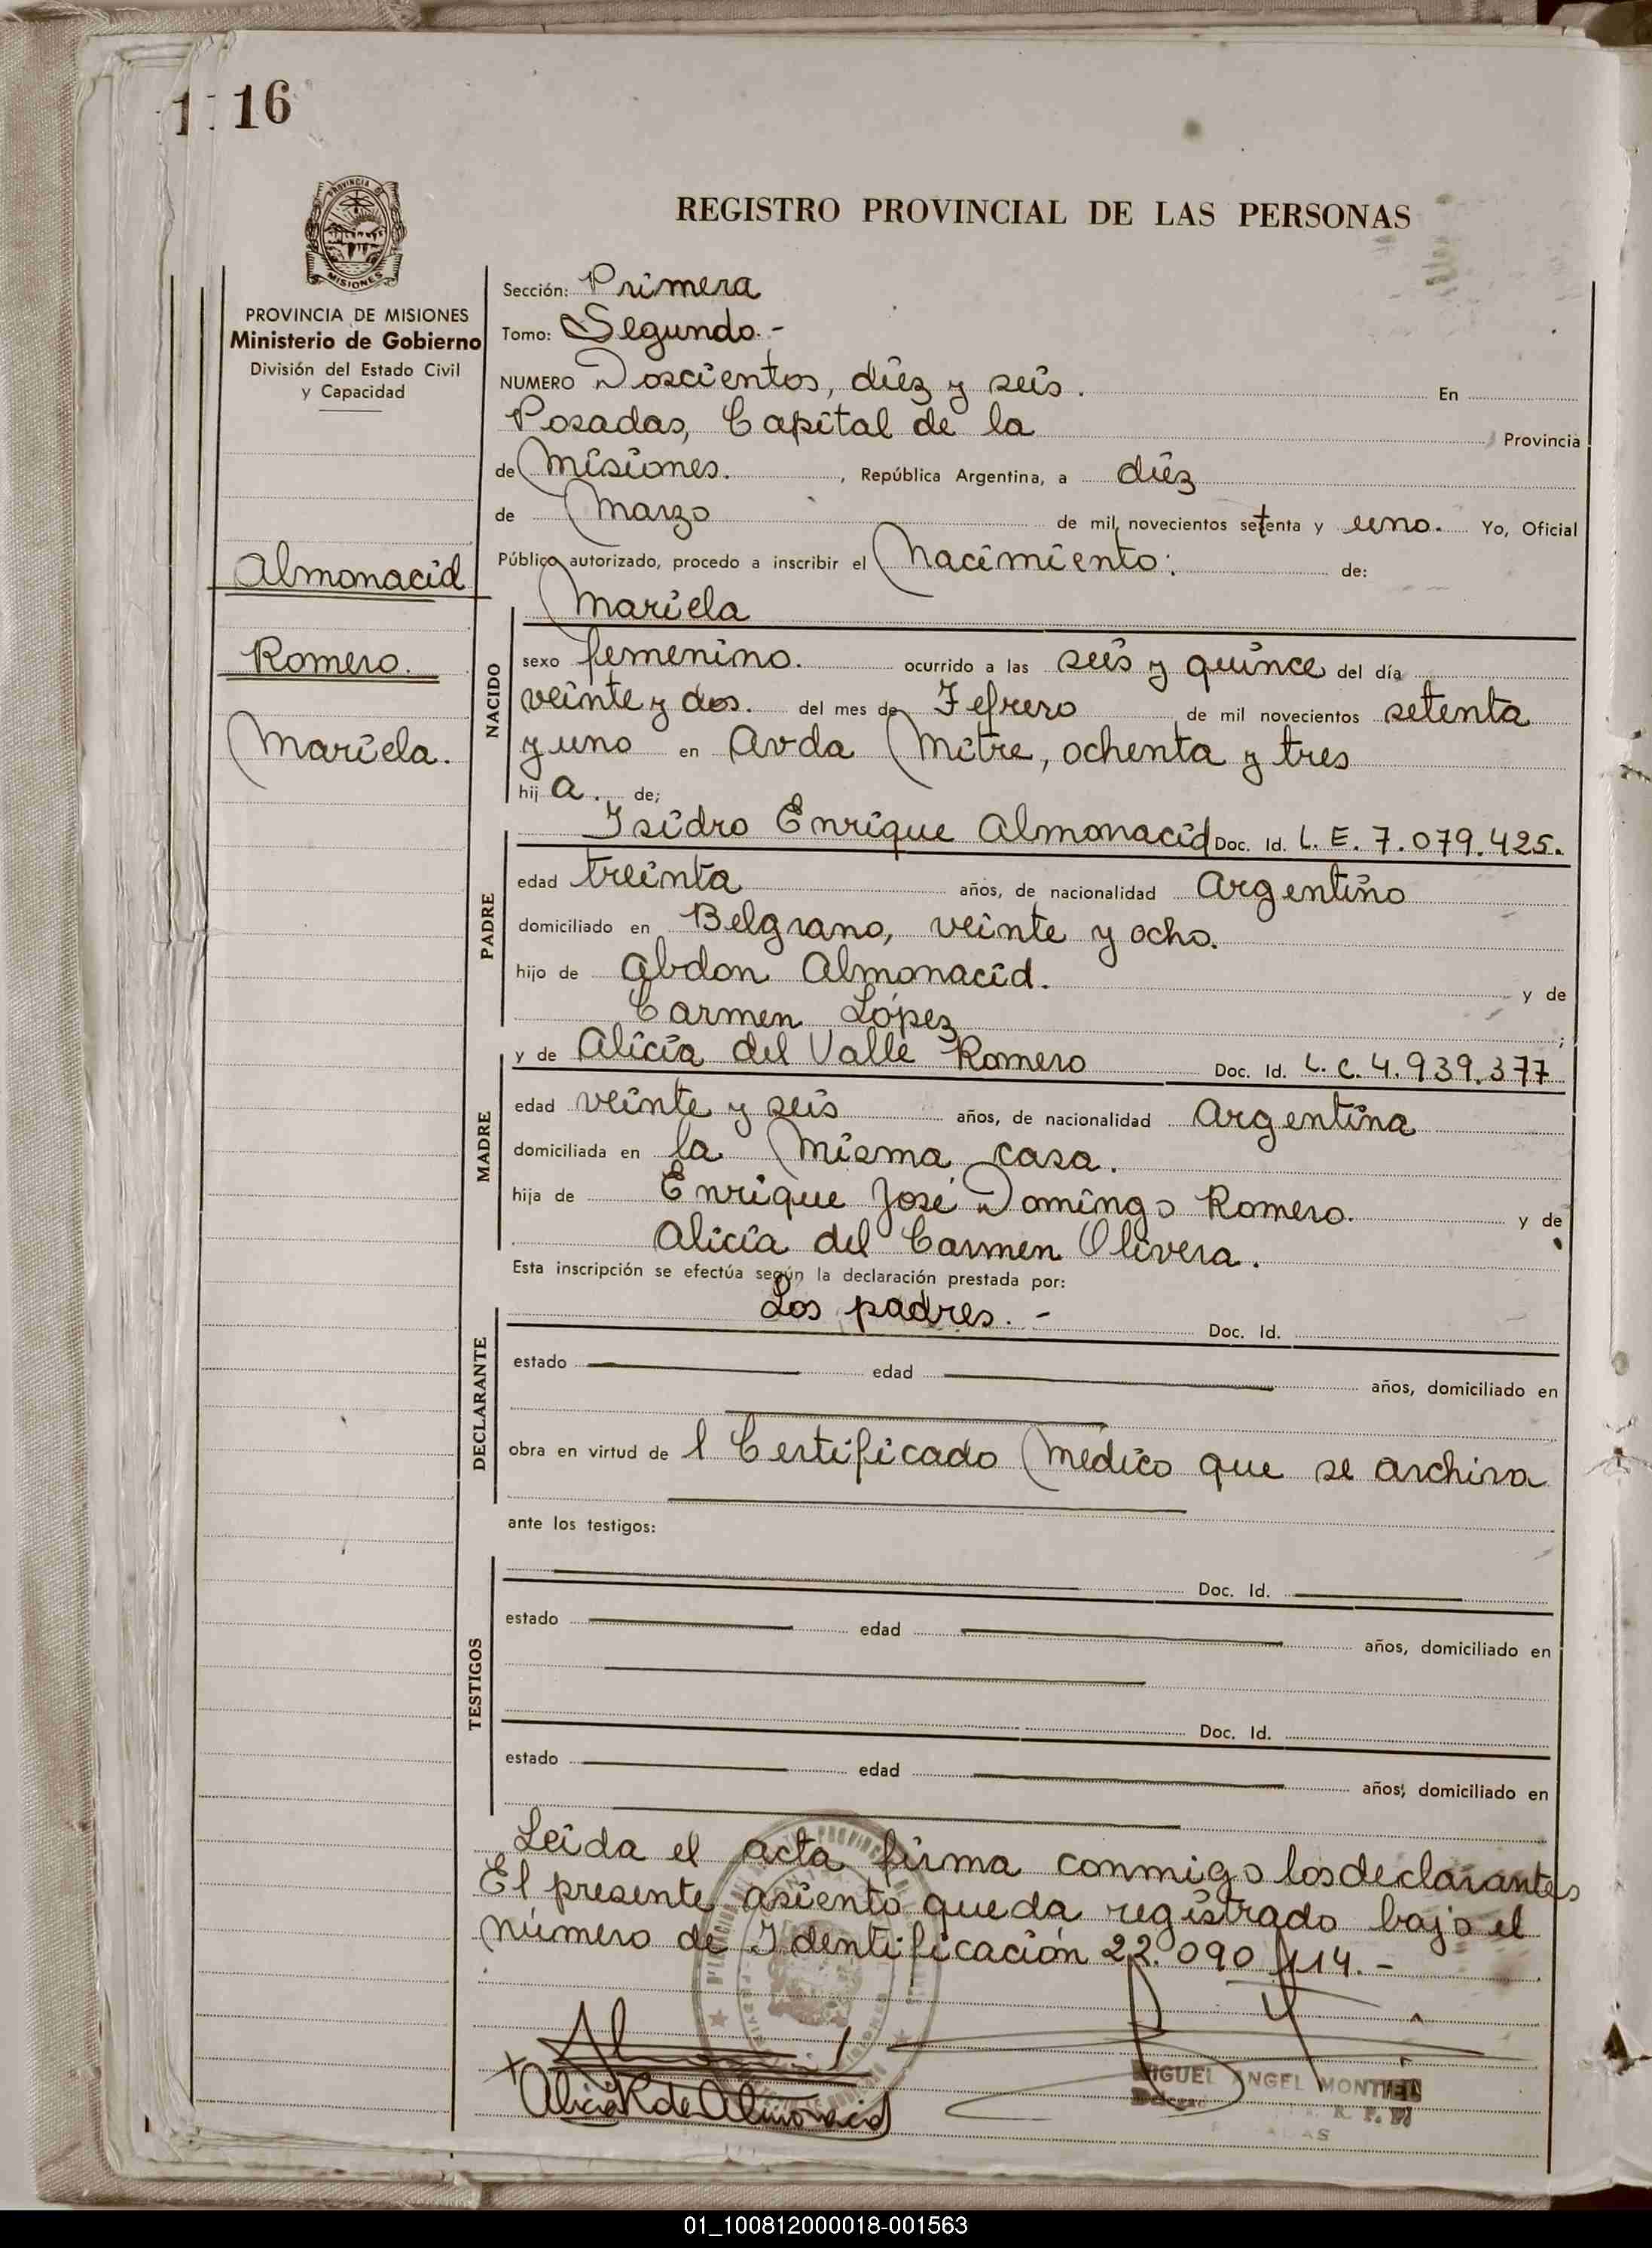 1 16
PROVINCIA DE
MISIONES
PROVINCIA DE MISIONES
Ministerio de Gobierno
División del Estado Civil
y Capacidad
Almonacid
Romero.
Mariela.
REGISTRO PROVINCIAL DE LAS PERSONAS
Sección: Primera
Tomo: Segundo.-
NUMERO Doscientos, diez y seis. En
Posadas, Capital de la Provincia
de Misiones. , República Argentina, a diez
de Marzo de mil novecientos setenta y uno. Yo, Oficial
Público autorizado, procedo a inscribir el Nacimiento: de:
Mariela
NACIDO
sexo femenino. ocurrido a las seis y quince del día
veinte y dos. del mes de Febrero de mil novecientos setenta
y uno en Avda Mitre, ochenta y tres
hij a. de;
Isidro Enrique Almonacid Doc. Id. L. E. 7.079.425.
PADRE
edad treinta años, de nacionalidad Argentino
domiciliado en Belgrano, veinte y ocho.
hijo de Abdon Almonacid. y de
Carmen López ;
MADRE
y de Alicia del Valle Romero Doc. Id. L.C. 4.939.377
edad veinte y seis años, de nacionalidad Argentina
domiciliada en la misma casa.
hija de Enrique José Domingo Romero. y de
Alicia del Carmen Olivera.
Esta inscripción se efectúa según la declaración prestada por:
DECLARANTE
Los padres.- Doc. Id.
estado edad años, domiciliado en
obra en virtud de l Certificado Médico que se archiva
ante los testigos:
TESTIGOS
Doc. Id.
estado edad años, domiciliado en
Doc. Id.
estado edad años, domiciliado en
Leída el acta firma conmigo los declarantes
El presente asiento queda registrado bajo el
número de Identificación 22.090.114.-
Alicia R de Almonacid
MIGUEL ANGEL MONTIEL
01_100812000018-001563